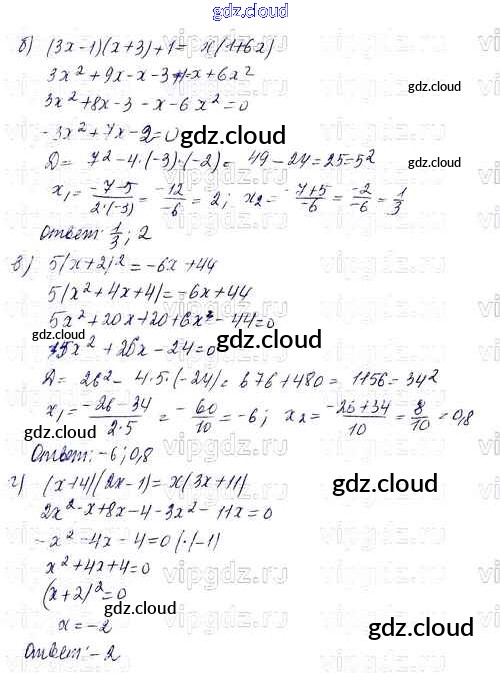 gdz.cloud
б) (3x-1)(x+3)+1=x(1+6x)
3x²+9x-x-3+1=x+6x²
3x²+8x-3-x-6x²=0
-3x²+7x-2=0
gdz.cloud
D=7²-4·(-3)·(-2)=49-24=25=5²
x₁=(-7-5)/(2·(-3))=(-12)/(-6)=2; x₂=(-7+5)/(-6)=(-2)/(-6)=1/3
Ответ: 1/3; 2
в) 5(x+2)²=-6x+44
5(x²+4x+4)=-6x+44
5x²+20x+20+6x-44=0
5x²+26x-24=0
D=26²-4·5·(-24)=676+480=1156=34²
x₁=(-26-34)/(2·5)=-60/10=-6; x₂=(-26+34)/10=8/10=0,8
Ответ: -6; 0,8
г) (x+4)(2x-1)=x(3x+11)
2x²-x+8x-4-3x²-11x=0
-x²-4x-4=0 |·(-1)
x²+4x+4=0
(x+2)²=0
x=-2
Ответ: -2
gdz.cloud
gdz.cloud
gdz.cloud
gdz.cloud
gdz.cloud
gdz.cloud
gdz.cloud
gdz.cloud
vipgdz.ru
vipgdz.ru
vipgdz.ru